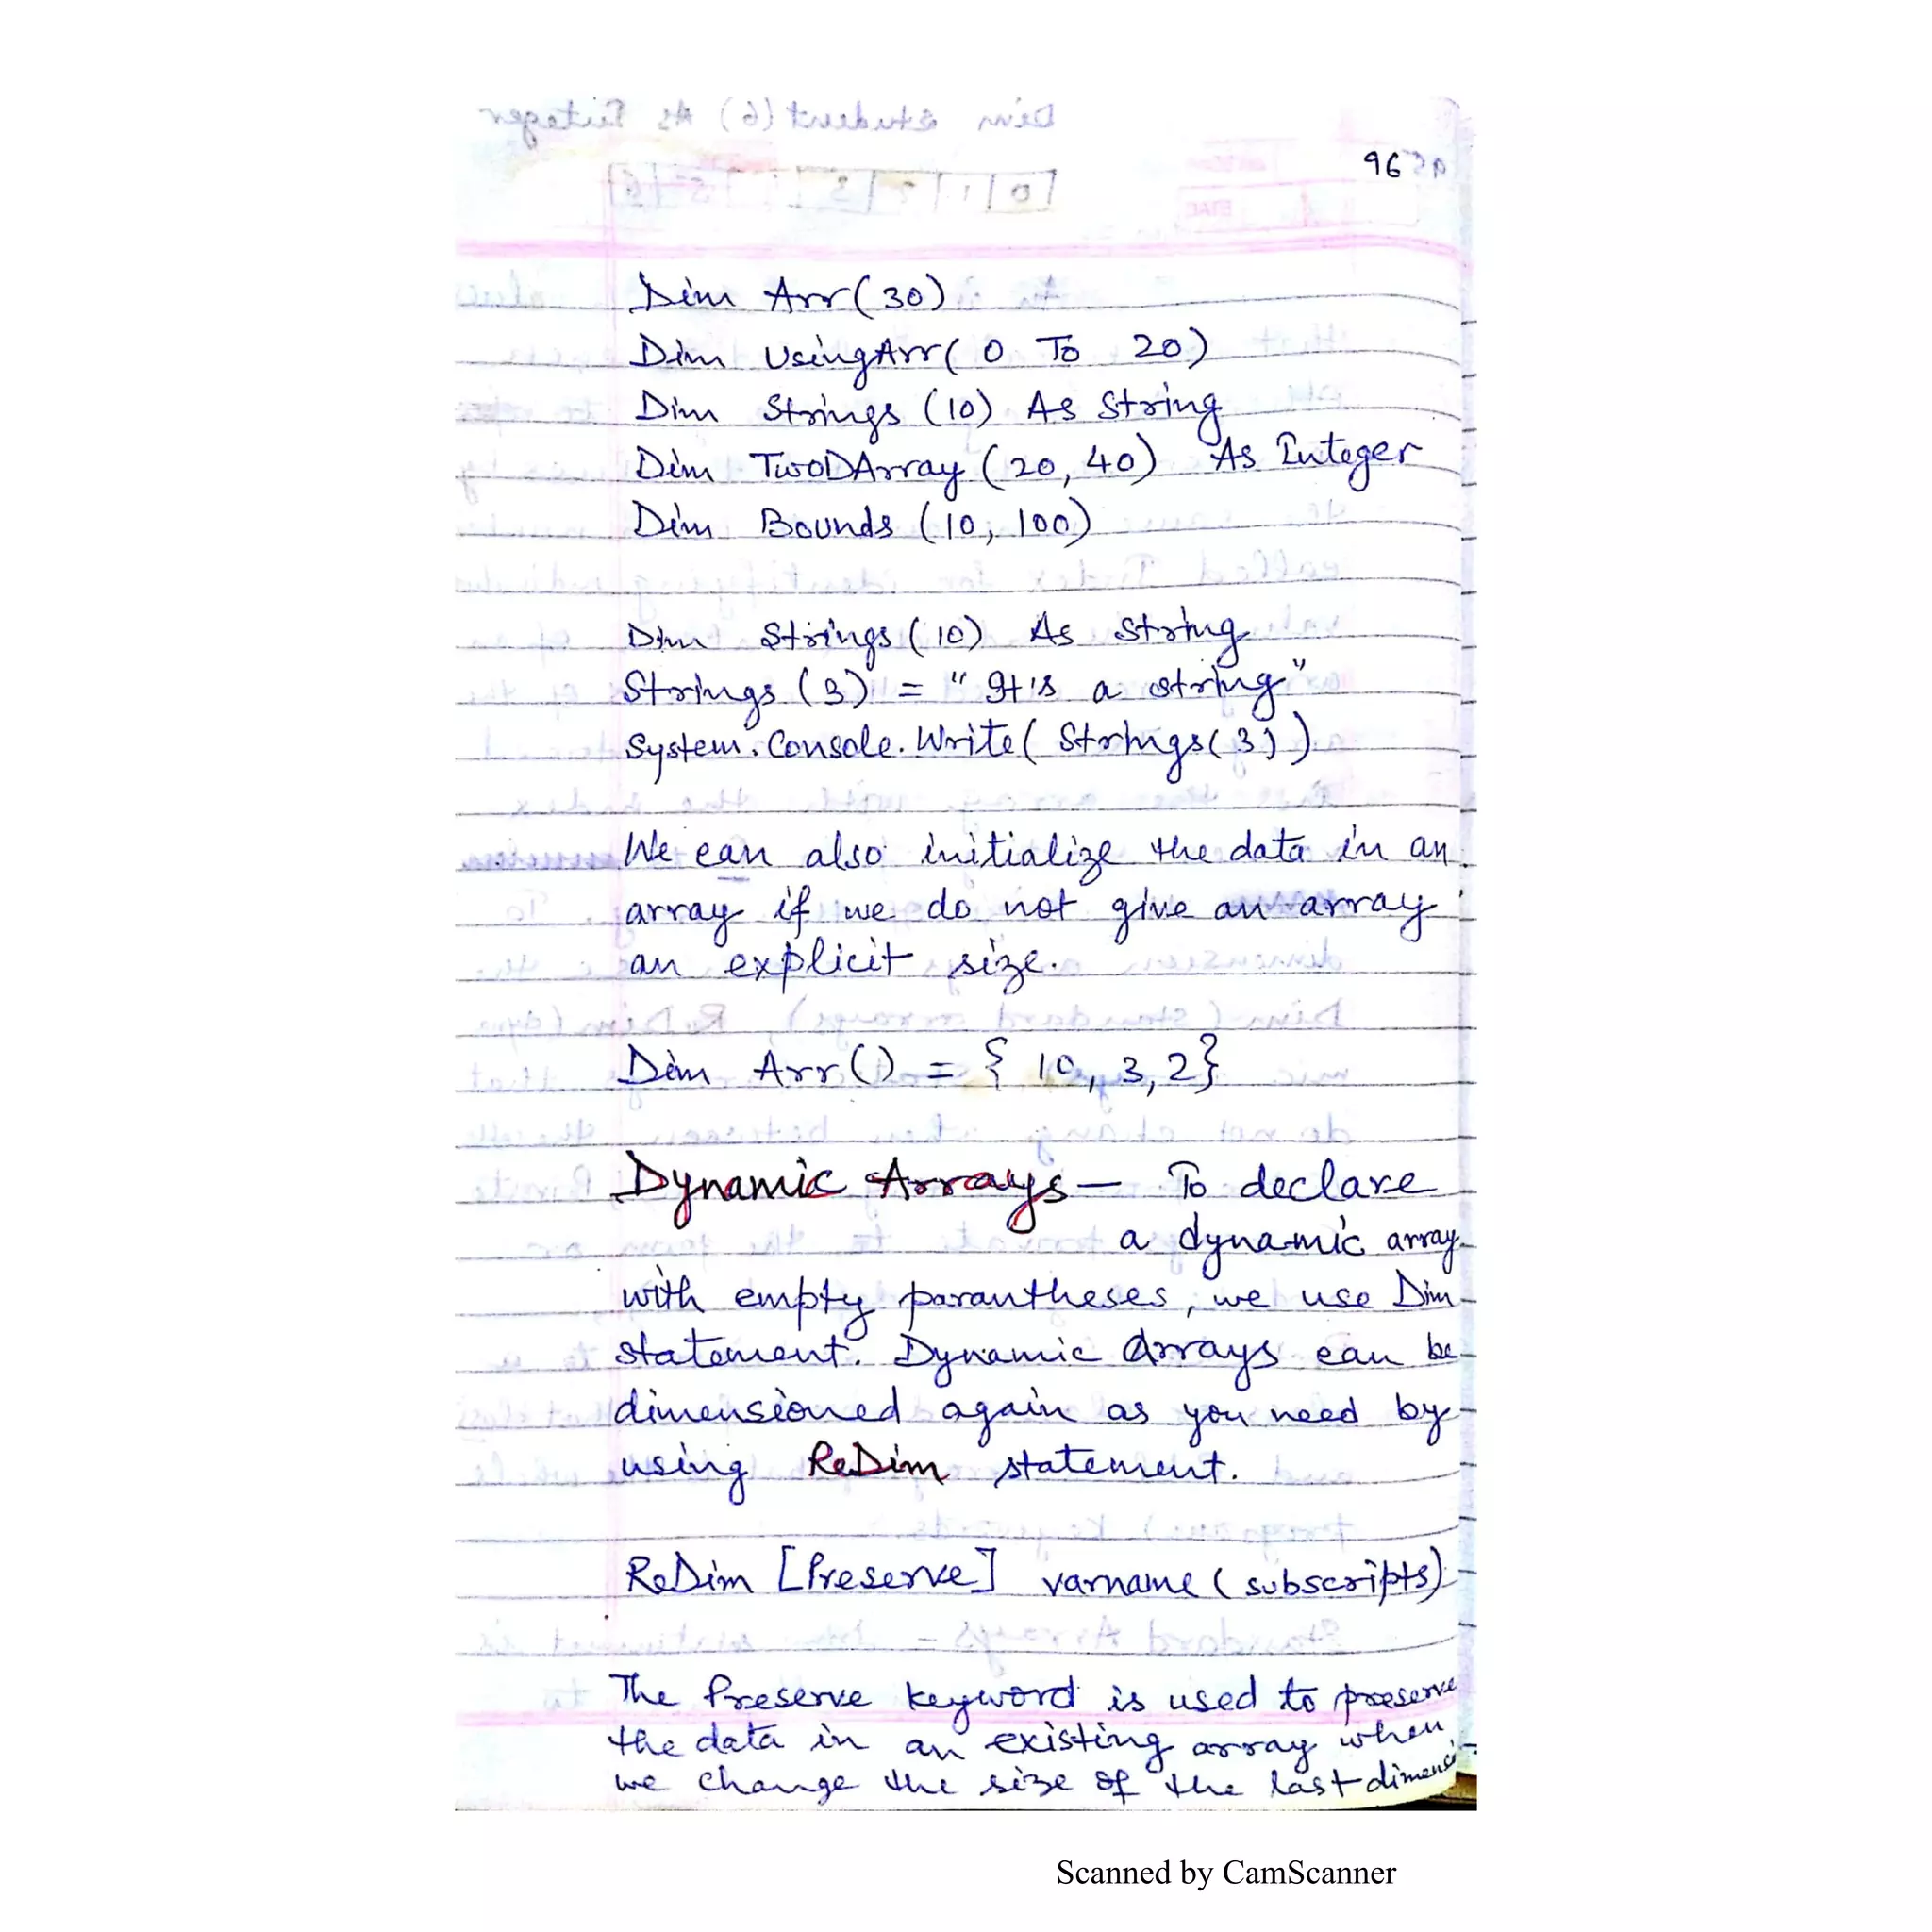 96
Dim Arr(30)
Dim UsingArr( 0 To 20)
Dim Strings (10) As String
Dim TwoDArray (20, 40) As Integer
Dim Bounds (10, 100)
Dim Strings (10) As String
Strings (3) = "It's a string"
System.Console.Write( Strings(3))
We can also initialize the data in an
array if we do not give an array
an explicit size.
Dim Arr() = { 10, 3, 2}
Dynamic Arrays — To declare
a dynamic array
with empty parantheses, we use Dim
statement. Dynamic Arrays can be
dimensioned again as you need by
using ReDim statement.
ReDim [Preserve] varname (subscripts)
The Preserve keyword is used to preserve
the data in an existing array when
we change the size of the last dimensi
Scanned by CamScanner